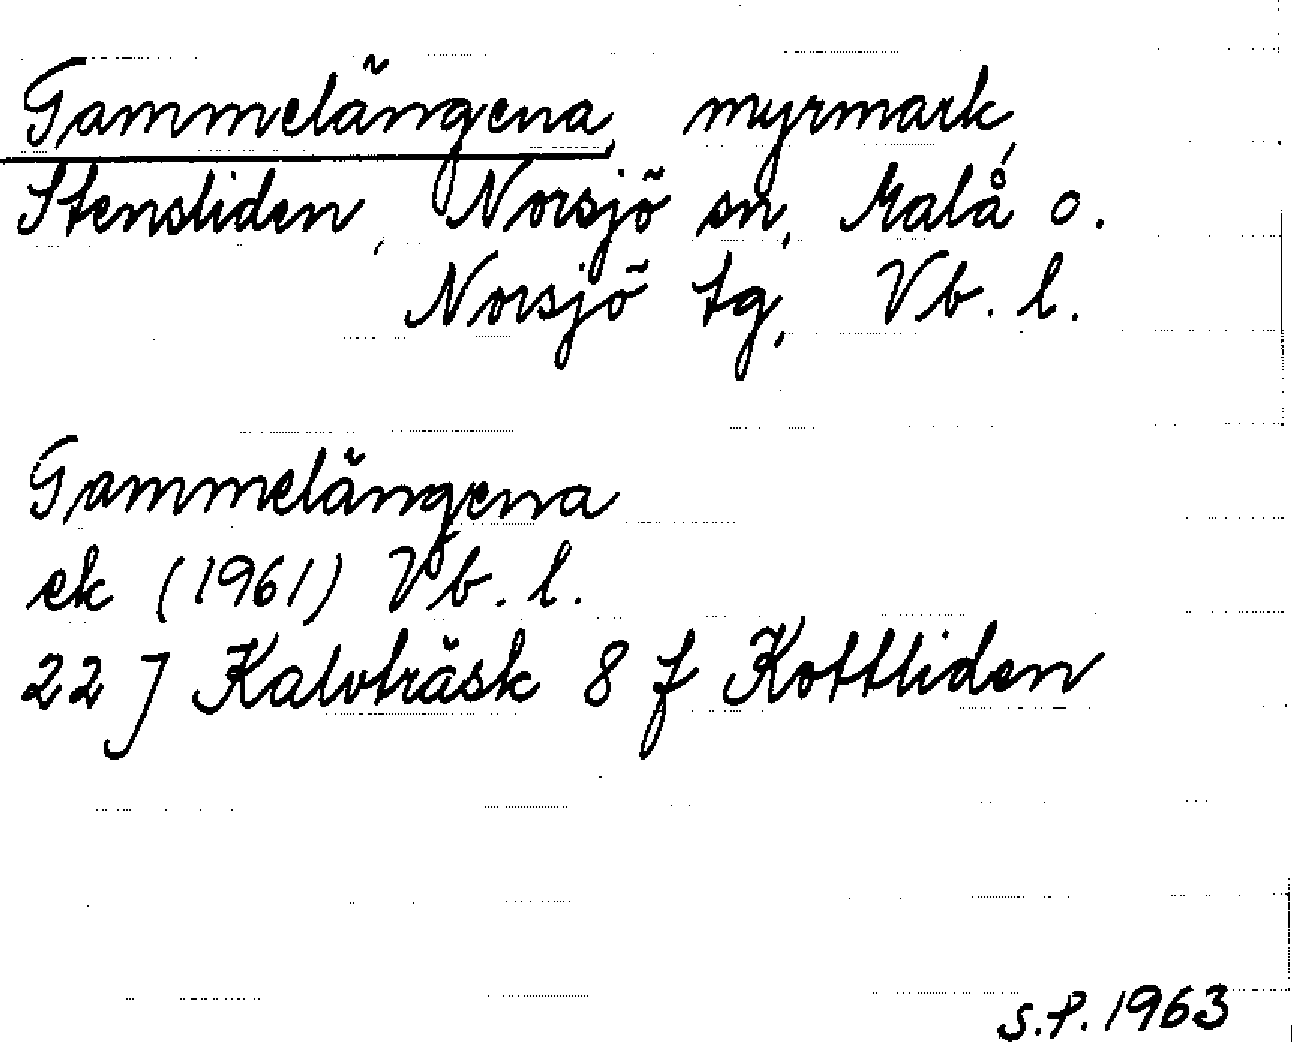 Gammelängena, myrmark,
Stensliden, Norsjö sn, Malå o.
Norsjö tg, Vb. l.
Gammelängena
ek (1961) Vb. l.
22 J Kalvträsk 8 f Kottliden
S.P. 1963